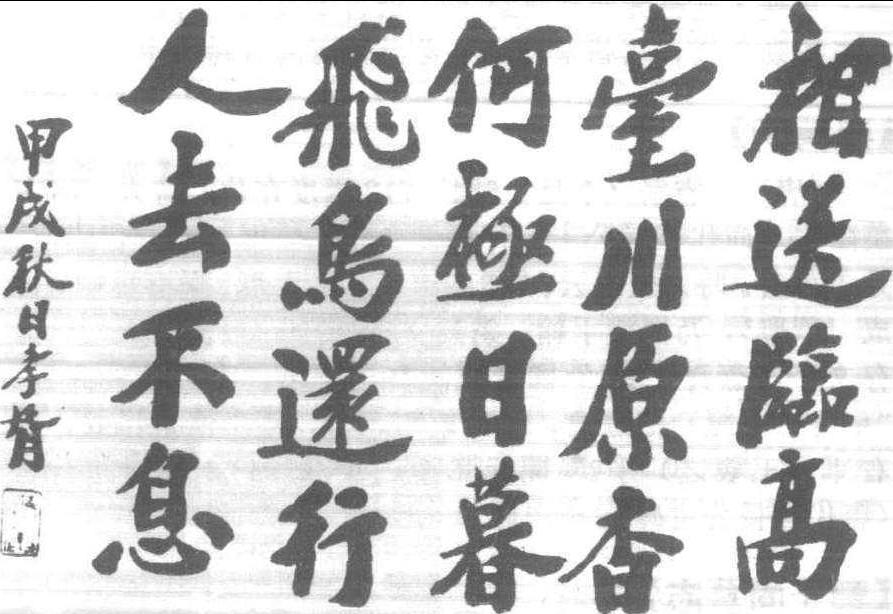 相送臨高
臺川原杳
何極日暮
飛鳥還行
人去不息
甲戌秋日孝胥